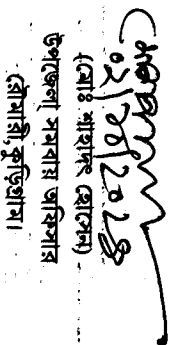 (মোঃ শাহাদৎ হোসেন)
উপজেলা সমবায় অফিসার
রৌমারী, কুড়িগ্রাম।